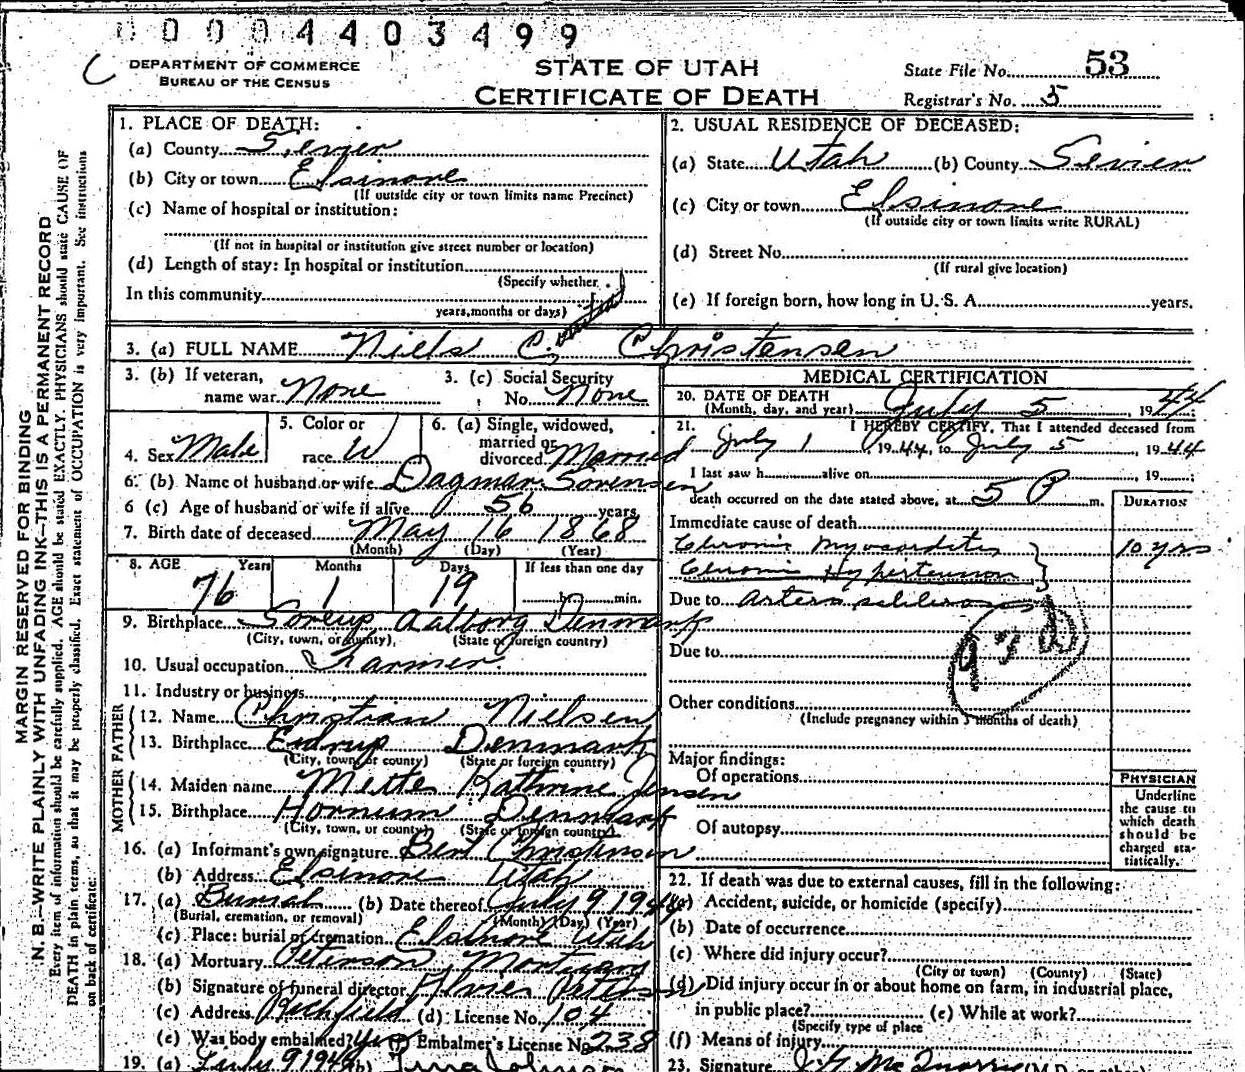 0 0 0 4 4 0 3 4 9 9
DEPARTMENT OF COMMERCE
BUREAU OF THE CENSUS
STATE OF UTAH
CERTIFICATE OF DEATH
State File No. 53
Registrar's No. 5
MARGIN RESERVED FOR BINDING
N. B.—WRITE PLAINLY WITH UNFADING INK—THIS IS A PERMANENT RECORD
Every item of information should be carefully supplied. AGE should be stated EXACTLY. PHYSICIANS should state CAUSE OF
DEATH in plain terms, so that it may be properly classified. Exact statement of OCCUPATION is very important. See instructions
on back of certificate.
1. PLACE OF DEATH:
(a) County Sevier
(b) City or town Elsinore
(If outside city or town limits name Precinct)
(c) Name of hospital or institution:
(If not in hospital or institution give street number or location)
(d) Length of stay: In hospital or institution
(Specify whether
In this community
years, months or days)
2. USUAL RESIDENCE OF DECEASED:
(a) State Utah (b) County Sevier
(c) City or town Elsinore
(If outside city or town limits write RURAL)
(d) Street No.
(If rural give location)
(e) If foreign born, how long in U. S. A. years.
3. (a) FULL NAME Niels C. Christensen
3. (b) If veteran, name war None
3. (c) Social Security No. None
4. Sex Male
5. Color or race W
6. (a) Single, widowed, married or divorced Married
6. (b) Name of husband or wife Dagmar Sorensen
6 (c) Age of husband or wife if alive 56 years
7. Birth date of deceased May 16 1868
(Month) (Day) (Year)
8. AGE Years Months Days If less than one day
76 1 19 hr. min.
9. Birthplace Sorup Aalborg Denmark
(City, town, or county) (State or foreign country)
10. Usual occupation Farmer
11. Industry or business
FATHER
12. Name Christian Nielsen
13. Birthplace Edrup Denmark
(City, town, or county) (State or foreign country)
MOTHER
14. Maiden name Mette Kathrine Jensen
15. Birthplace Hornum Denmark
(City, town, or county) (State or foreign country)
16. (a) Informant's own signature Bert Christensen
(b) Address Elsinore Utah
17. (a) Burial (b) Date thereof July 9 1944
(Burial, cremation, or removal) (Month) (Day) (Year)
(c) Place: burial or cremation Elsinore Utah
18. (a) Mortuary Peterson Mortuary
(b) Signature of funeral director
(c) Address Richfield (d) License No. 104
(e) Was body embalmed? Yes Embalmer's License No. 238
19. (a) July 9 1944 (b) Johnson
MEDICAL CERTIFICATION
20. DATE OF DEATH
(Month, day, and year) July 5, 1944
21. I HEREBY CERTIFY, That I attended deceased from
July 1, 1944, to July 5, 1944
I last saw h alive on , 19
death occurred on the date stated above, at 5 P m.
DURATION
Immediate cause of death
Chronic Myocarditis 10 yrs
Chronic Hypertension
Due to Arterio sclerosis
93d
Due to
Other conditions
(Include pregnancy within 3 months of death)
Major findings:
Of operations
Of autopsy
PHYSICIAN
Underline
the cause to
which death
should be
charged sta-
tistically.
22. If death was due to external causes, fill in the following:
(a) Accident, suicide, or homicide (specify)
(b) Date of occurrence
(c) Where did injury occur?
(City or town) (County) (State)
(d) Did injury occur in or about home on farm, in industrial place,
in public place? (e) While at work?
(Specify type of place
(f) Means of injury
23. Signature J. G. McQuarrie (M.D. or other)